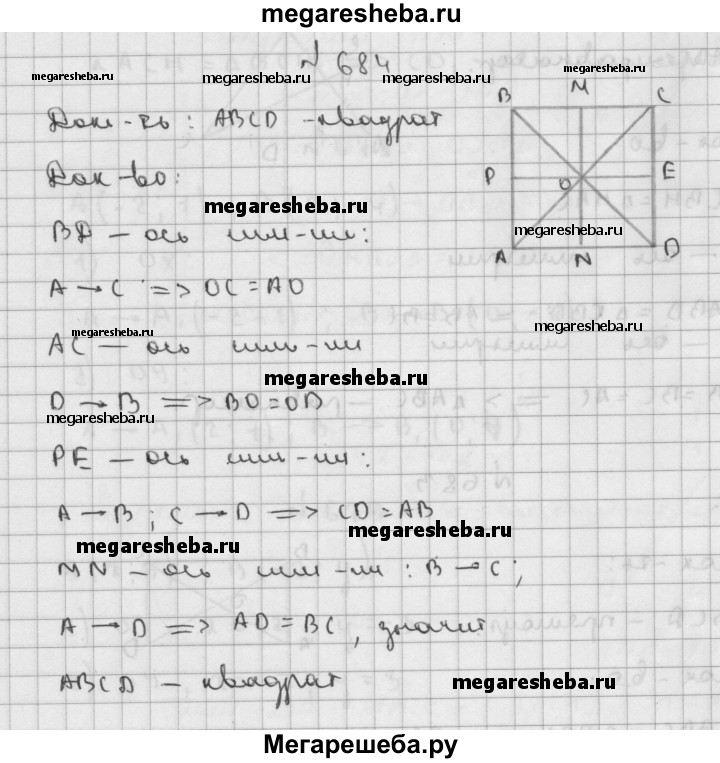 megaresheba.ru
N 684
megaresheba.ru megaresheba.ru megaresheba.ru
B M C
Док-ть : ABCD – квадрат
Док-во:
P O E
megaresheba.ru
BD – ось сим-ии:
megaresheba.ru
A N D
A → C => OC = AO
megaresheba.ru
megaresheba.ru
AC – ось сим-ии
megaresheba.ru
D → B => BO = OD
megaresheba.ru
PE – ось сим-ии:
A → B ; C → D => CD = AB
megaresheba.ru
megaresheba.ru
MN – ось сим-ии : B → C ;
A → D => AD = BC , значит
ABCD – квадрат
megaresheba.ru
Мегарешеба.ру